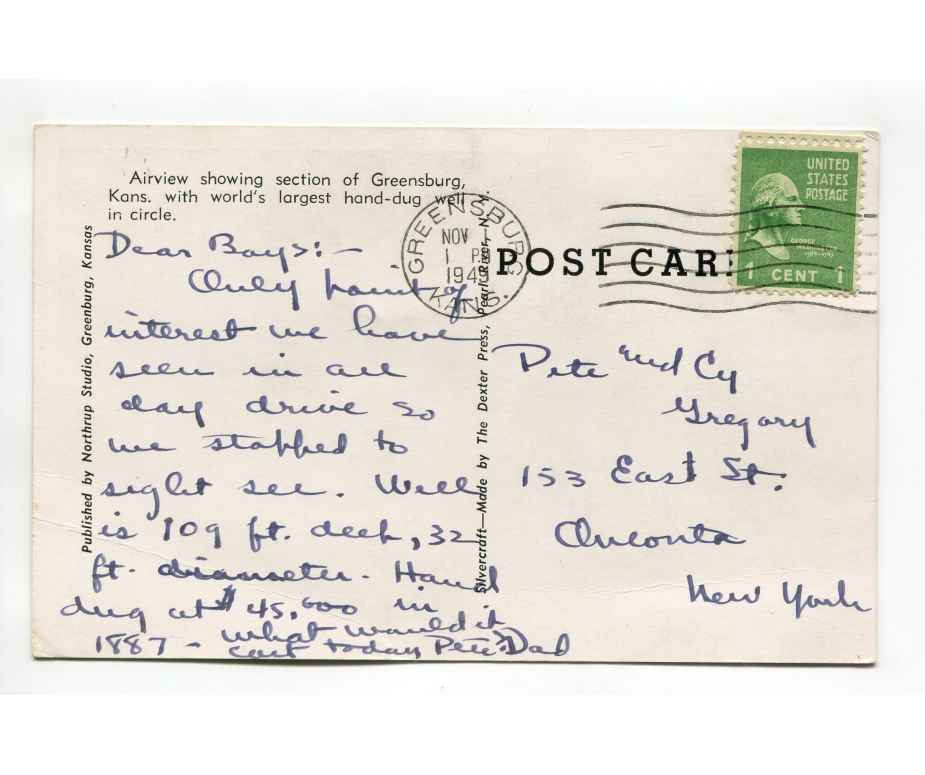 Airview showing section of Greensburg,
Kans. with world's largest hand-dug well
in circle.
Published by Northrup Studio, Greenburg, Kansas
Dear Boys:-
Only point of
interest we have
seen in all
day drive so
we stopped to
sight see. Well
is 109 ft. deep, 32
ft. diameter. Hand
dug at $45,000 in
1887 - what would it
cost today Pete? Dad
Silvercraft—Made by The Dexter Press, Pearl River, N. Y.
GREENSBURG
NOV
1 P
1949
KANS.
POST CAR
UNITED
STATES
POSTAGE
GEORGE
WASHINGTON
1789-1797
1 CENT 1
Pete and Cy
Gregory
153 East St.
Oneonta
New York